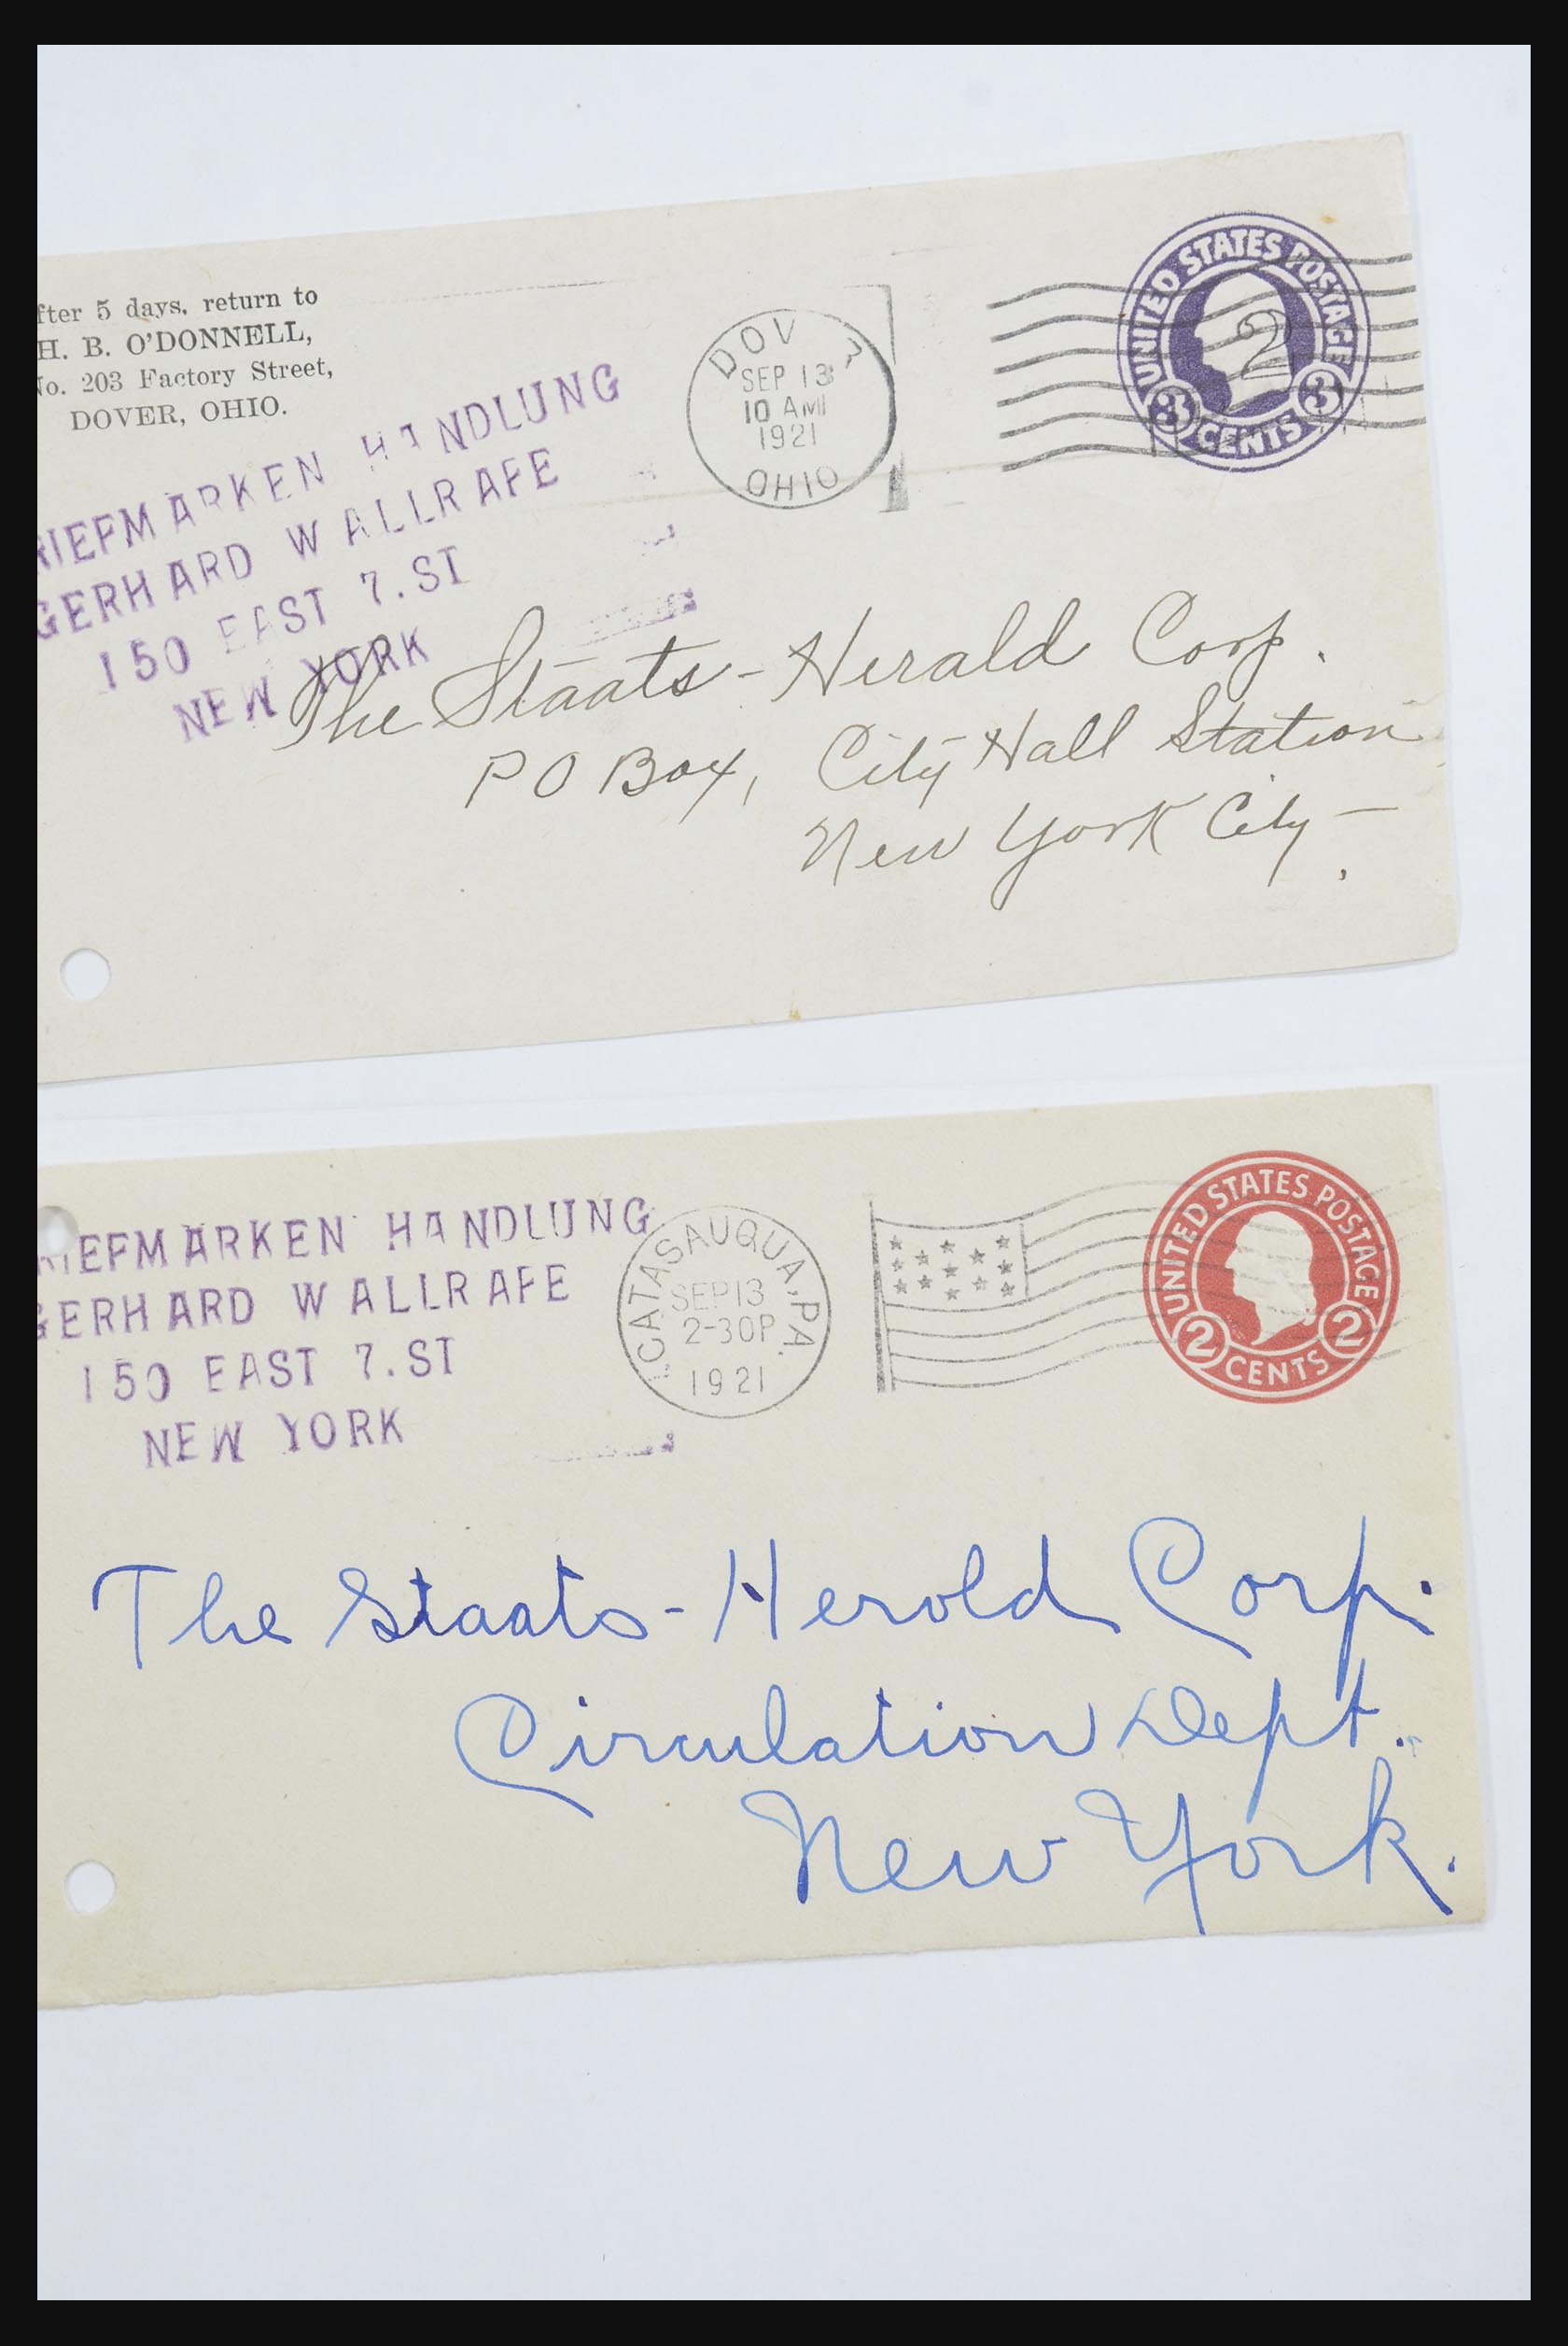 fter 5 days, return to
H. B. O'DONNELL,
No. 203 Factory Street,
DOVER, OHIO.
RIEFMARKEN HANDLUNG
GERHARD WALLRAFE
150 EAST 7.ST
NEW YORK
DOV R
SEP 13
10 AM
1921
OHIO
UNITED STATES POSTAGE
2
3 CENTS 3
The Staats-Herald Corp.
P O Box, City Hall Station
New York City
RIEFMARKEN HANDLUNG
GERHARD WALLRAFE
150 EAST 7.ST
NEW YORK
CATASAUQUA, PA.
SEP 13
2-30P
1921
UNITED STATES POSTAGE
2 CENTS 2
The Staats-Herold Corp.
Circulation Dept.
New York.